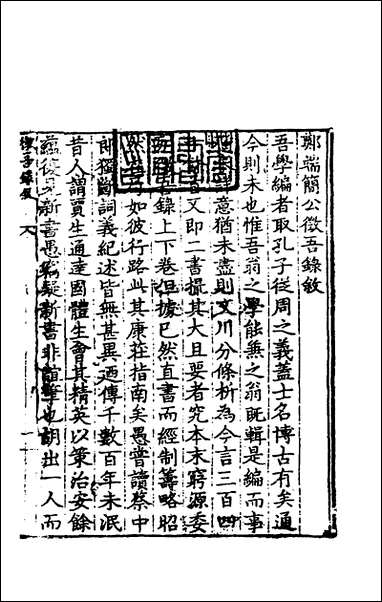 鄭端簡公徵吾錄敘
吾學編者取孔子從周之義蓋士名博古有矣通
今則未也惟吾翁之學能兼之翁既輯是編而事
意猶未盡則又川分條析為今言三百四
又即二書撮其大且要者究本末窮源委
吾錄上下卷但據已然直書而經制籌略昭
然如彼行路此其康莊指南矣愚普讀蔡中
郎獨斷詞義紀述皆無甚異迺傳千數百年未泯
昔人謂賈生通達國體生會其精英以策治安餘
蘊後見新書愚竊疑新書非誼筆也胡出一人而
徵吾錄敘
一